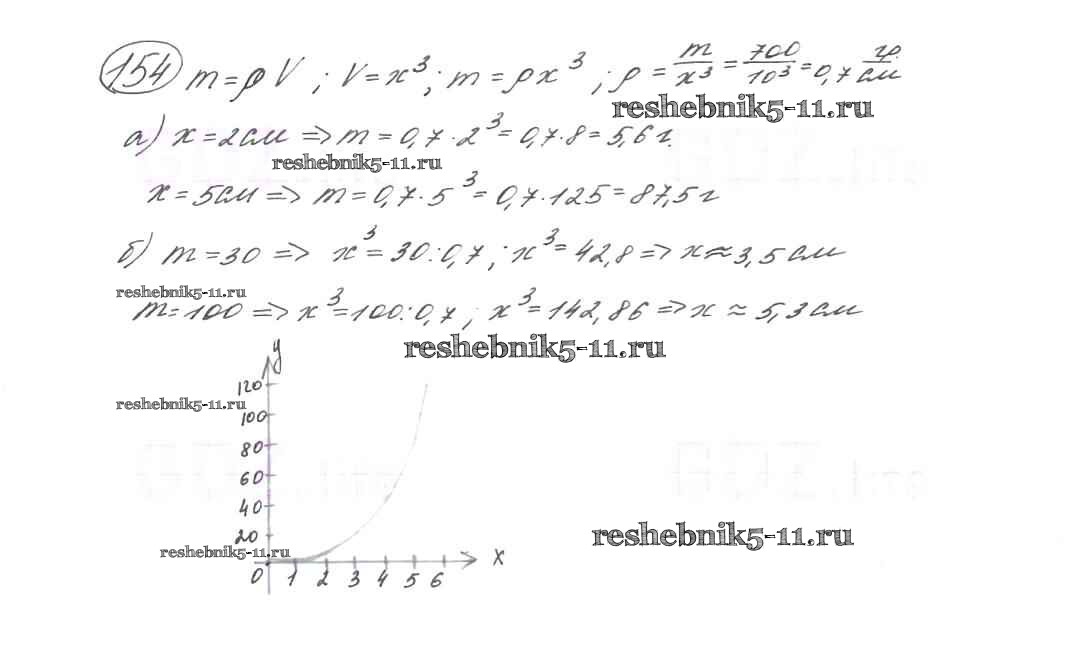 154 m=ρV ; V=x³; m=ρx³ ; ρ = m/x³ = 700/10³ = 0,7 гр/см
reshebnik5-11.ru
а) x=2см => m=0,7·2³=0,7·8=5,6г
reshebnik5-11.ru
x=5см => m=0,7·5³=0,7·125=87,5г
б) m=30 => x³=30:0,7 ; x³=42,8 => x≈3,5см
reshebnik5-11.ru
m=100 => x³=100:0,7 ; x³=142,86 => x≈5,3см
reshebnik5-11.ru
y
120
reshebnik5-11.ru
100
80
60
40
20
reshebnik5-11.ru
reshebnik5-11.ru
x
0 1 2 3 4 5 6